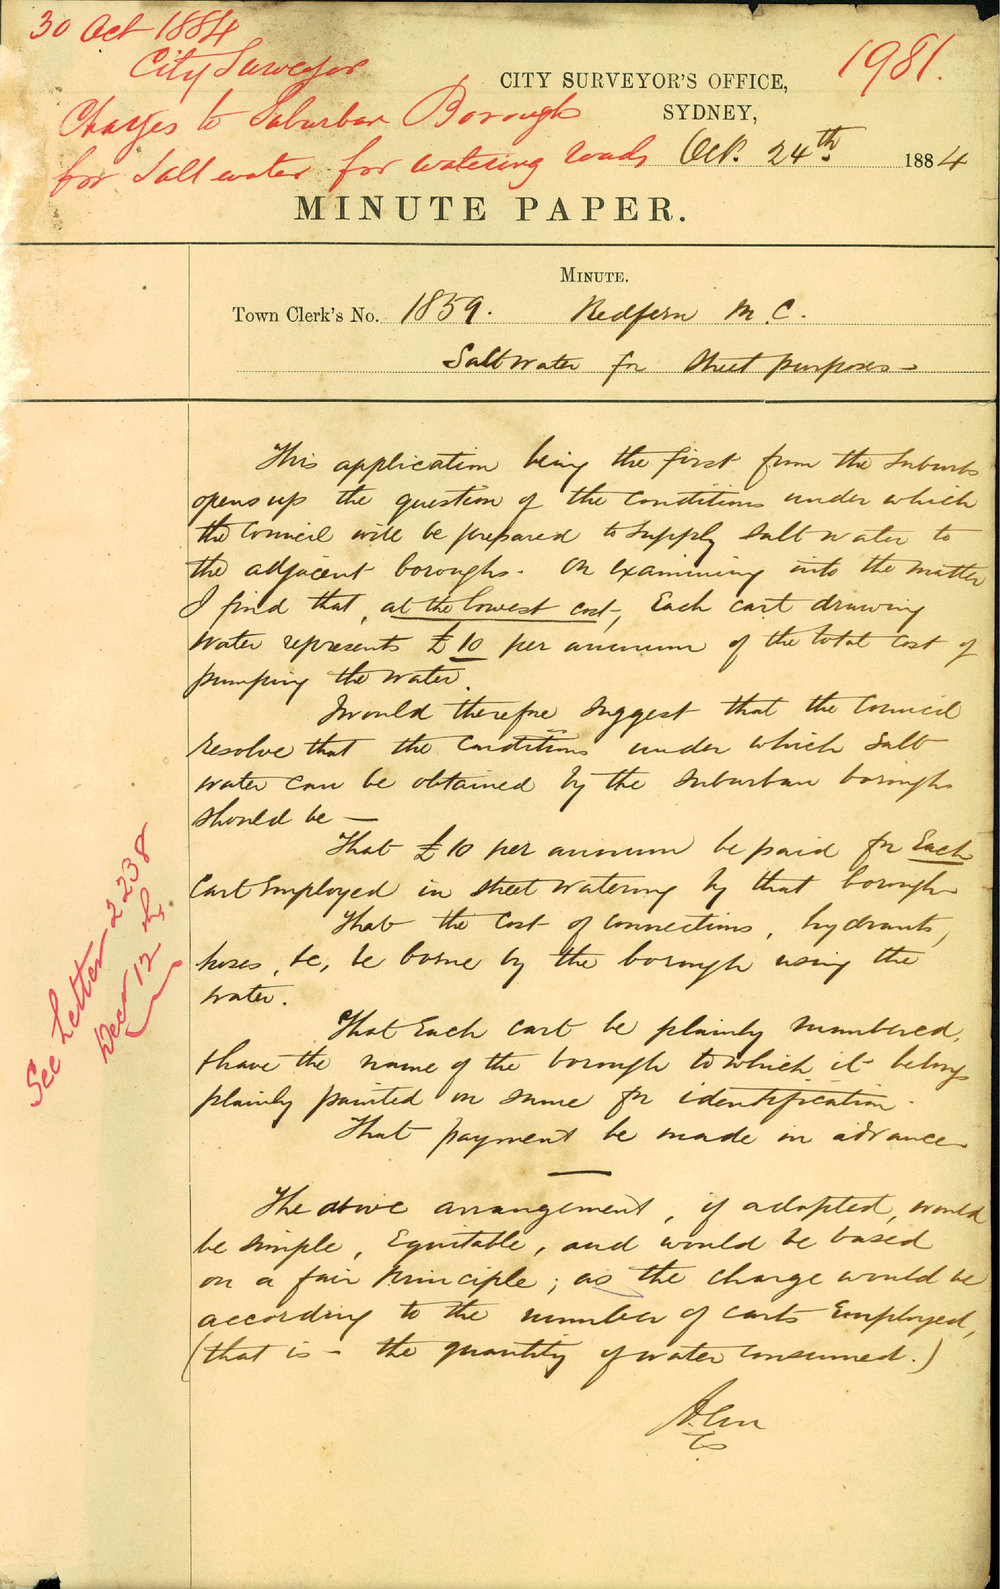 30 Oct 1884
City Surveyor
Charges to Suburban Boroughs
for Salt water for watering roads
1981.
CITY SURVEYOR'S OFFICE,
SYDNEY,
Oct. 24th 1884
MINUTE PAPER.
MINUTE.
Town Clerk's No. 1859. Redfern M.C.
Salt water for Street purposes –
This application being the first from the suburbs
opens up the question of the conditions under which
the Council will be prepared to supply salt water to
the adjacent boroughs. On examining into the matter
I find that, at the lowest cost, Each cart drawing
water represents £10 per annum of the total cost of
pumping the water.
I would therefore suggest that the Council
resolve that the Conditions under which Salt
water can be obtained by the suburban boroughs
should be —
That £10 per annum be paid for Each
Cart Employed in street watering by that borough
That the cost of connections, hydrants,
hoses, &c, be borne by the borough using the
water.
That Each cart be plainly numbered,
& have the name of the borough to which it belongs
plainly painted on same for identification.
That payment be made in advance
The above arrangement, if adopted, would
be simple, Equitable, and would be based
on a fair Principle; as the charge would be
according to the number of carts Employed,
(that is – the quantity of water consumed.)
CS
See Letter 2238
Decr 12